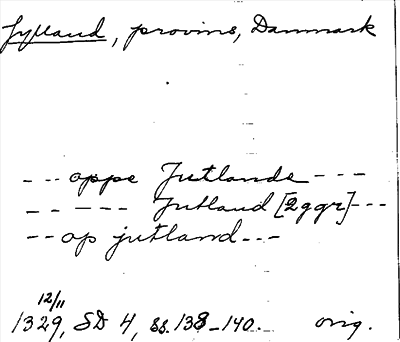 Jylland, provins, Danmark
--- oppe Jutlande ---
----- Jutland [2ggr] ---
-- op jutland ---
12/11
1329, SD 4, ss. 138-140. orig.